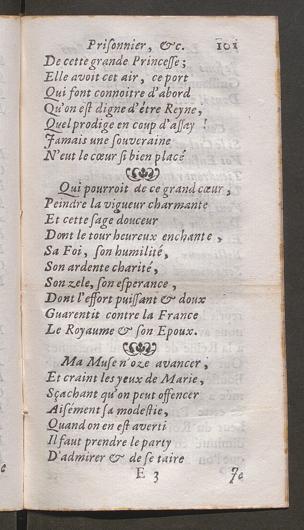 Prisonnier, &c. 101
De cette grande Princesse;
Elle avoit cet air, ce port
Qui font connoitre d'abord
Qu'on est digne d'étre Reyne,
Quel prodige en coup d'assay !
Jamais une souveraine
N'eut le cœur si bien placé
Qui pourroit de ce grand cœur,
Peindre la vigueur charmante
Et cette sage douceur
Dont le tour heureux enchante,
Sa Foi, son humilité,
Son ardente charité,
Son zele, son esperance,
Dont l'effort puissant & doux
Guarentit contre la France
Le Royaume & son Epoux.
Ma Muse n'oze avancer,
Et craint les yeux de Marie,
Sçachant qu'on peut offencer
Aisément sa modestie,
Quand on en est averti
Il faut prendre le party
D'admirer & de se taire
E 3 Je